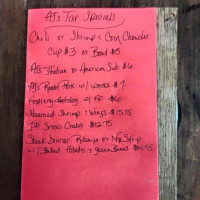 AJs Tav Specials
Chili or Shrimp & Corn Chowder
Cup $3 or Bowl $5
AJs Italian or American Sub $6
AJs Roast Pork w/ $7
Footlong Hotdog w/ FF $6
Steamed Shrimp & Wings $13.75
1 LB Snow Crabs $12.75
Steak Dinner Ribeye or NY Strip
w/ Baked Potato & green Beans $14.25